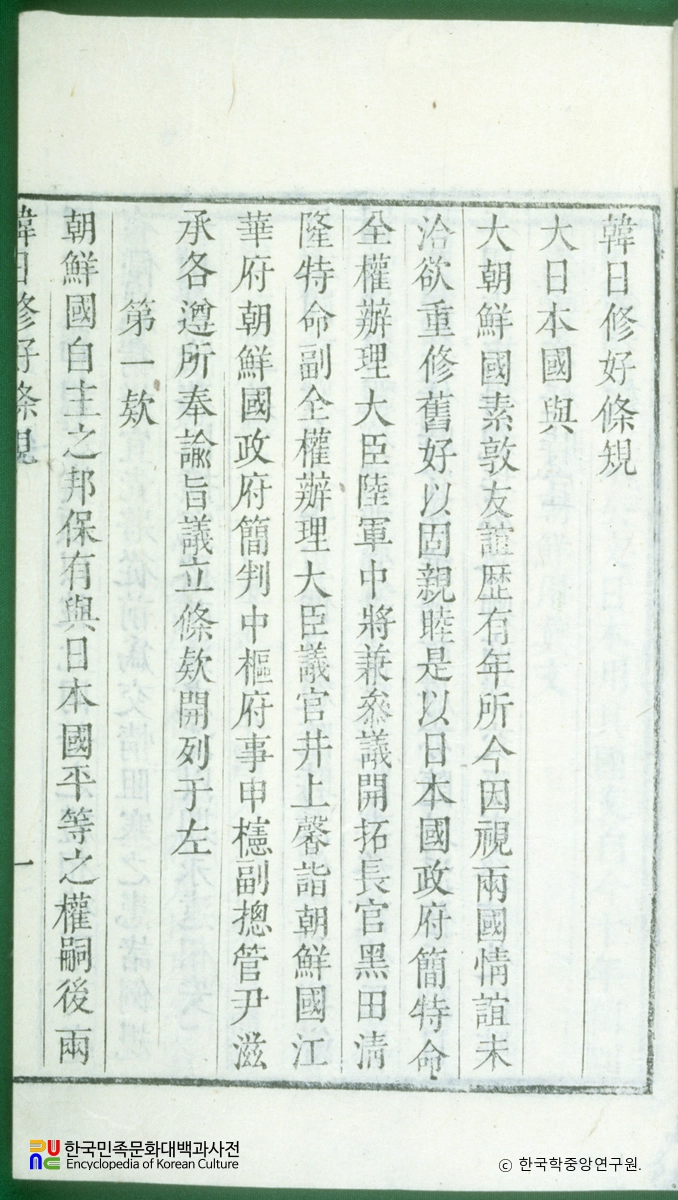 韓日修好條規
大日本國與
大朝鮮國素敦友誼歷有年所今因視兩國情誼未
洽欲重修舊好以固親睦是以日本國政府簡特命
全權辦理大臣陸軍中將兼參議開拓長官黑田淸
隆特命副全權辦理大臣議官井上馨詣朝鮮國江
華府朝鮮國政府簡判中樞府事申櫶副摠管尹滋
承各遵所奉諭旨議立條欵開列于左
第一欵
朝鮮國自主之邦保有與日本國平等之權嗣後兩
韓日修好條規
一
한국민족문화대백과사전
Encyclopedia of Korean Culture
ⓒ 한국학중앙연구원.